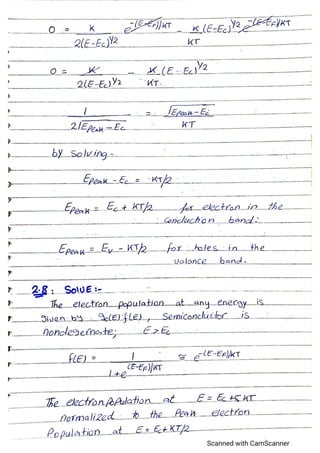 O = K / 2(E-Ec)^1/2 e^-(E-EF)/KT - K(E-Ec)^1/2 / KT e^-(E-EF)/KT
O = K / 2(E-Ec)^1/2 - K(E-Ec)^1/2 / KT.
1 / 2√EPeak-Ec = √EPeak-Ec / KT
by Solving -
EPeak - Ec = KT/2
EPeak = Ec + KT/2 for electron in the
Conduction band:
EPeak = Ev - KT/2 for holes in the
Valance band.
2.8: SolUE :-
The electron population at any energy is
given by gc(E) f(E), Semiconductor is
nondegenerate; E > Ec
f(E) = 1 / 1+e^(E-EF)/KT ≅ e^-(E-EF)/KT
The electron population at E = Ec+5KT
normalized to the Peak electron
Population at E = Ec+KT/2
Scanned with CamScanner